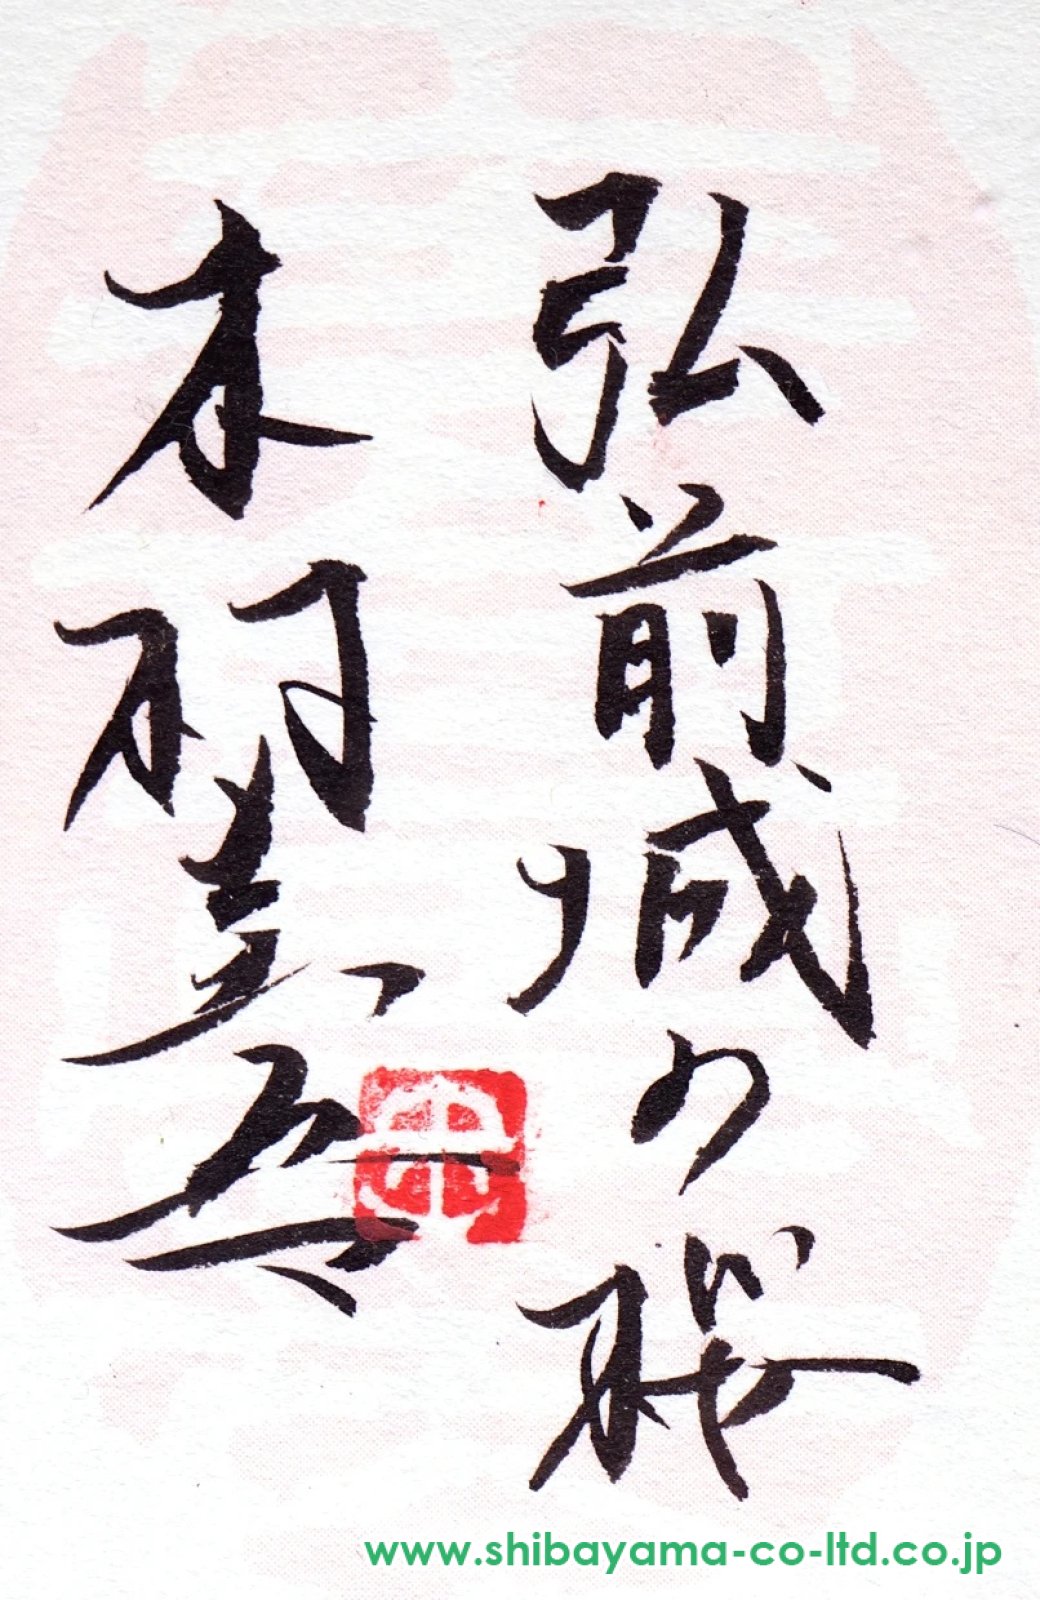 弘前城の桜
木村圭吾
www.shibayama-co-ltd.co.jp